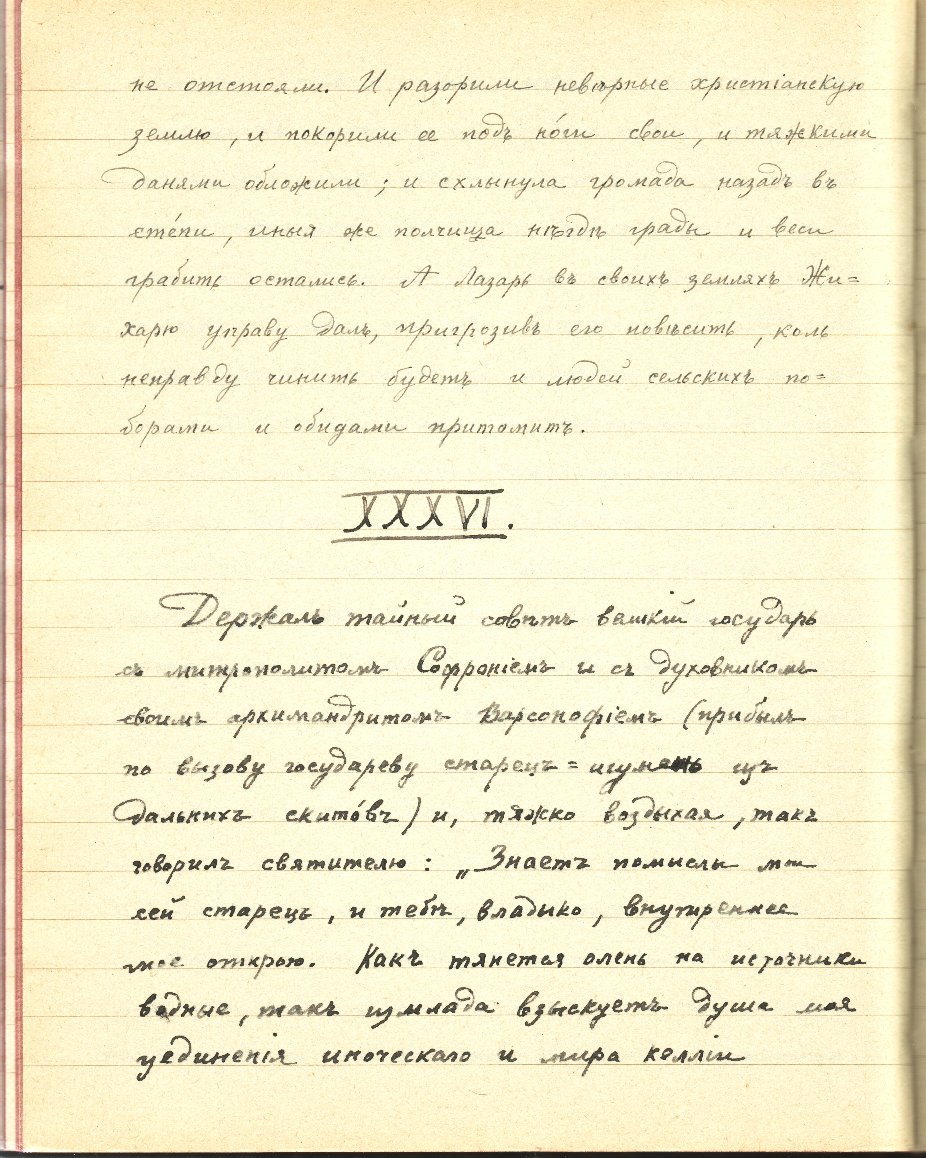 не отстояли. И разорили невѣрные христіанскую
землю, и покорили ее подъ но́ги свои, и тяжкими
данями обложили; и схлынула громада назадъ въ
сте́пи, иныя же полчища нѣгдѣ грады и веси
грабить остались. А Лазарь въ своихъ земляхъ Жи=
харю управу далъ, пригрозивъ его повѣсить, коль
неправду чинить будетъ и людей сельскихъ по=
борами и обидами притомитъ.
XXXVI.
Держалъ тайный совѣтъ великій государь
съ митрополитомъ Софроніемъ и съ духовникомъ
своимъ архимандритомъ Варсонофіемъ (прибылъ
по вызову государеву старецъ=игуменъ изъ
дальнихъ скито́въ) и, тяжко воздыхая, такъ
говорилъ святителю: „Знаетъ помыслы мои
сей старецъ, и тебѣ, владыко, внутреннее
мое открою. Какъ тянется олень на источники
водные, такъ измлада взыскуетъ душа моя
уединенія иноческаго и мира келліи